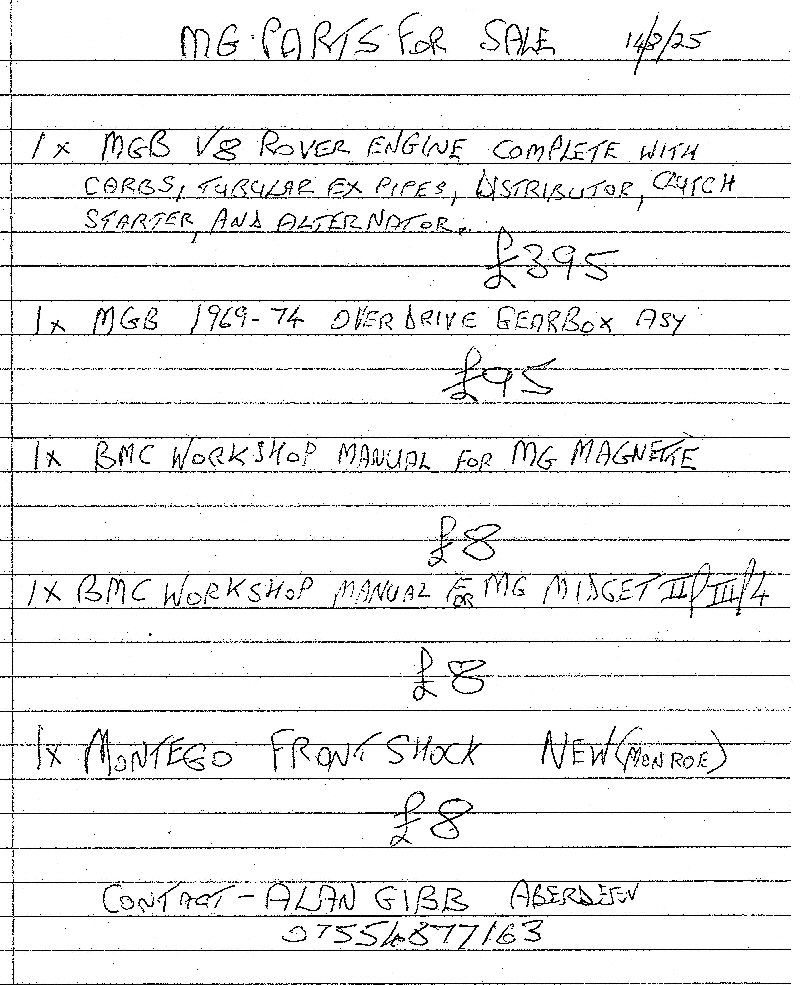 MG PARTS FOR SALE 14/8/25
1x MGB V8 ROVER ENGINE COMPLETE WITH
CARBS, TUBULAR EX PIPES, DISTRIBUTOR, CLUTCH
STARTER, AND ALTERNATOR.
£395
1x MGB 1969-74 OVERDRIVE GEARBOX ASY
£95
1x BMC WORKSHOP MANUAL FOR MG MAGNETTE
£8
1x BMC WORKSHOP MANUAL FOR MG MIDGET II/III/4
£8
1x MONTEGO FRONT SHOCK NEW (MONROE)
£8
CONTACT - ALAN GIBB ABERDEEN
07554877163